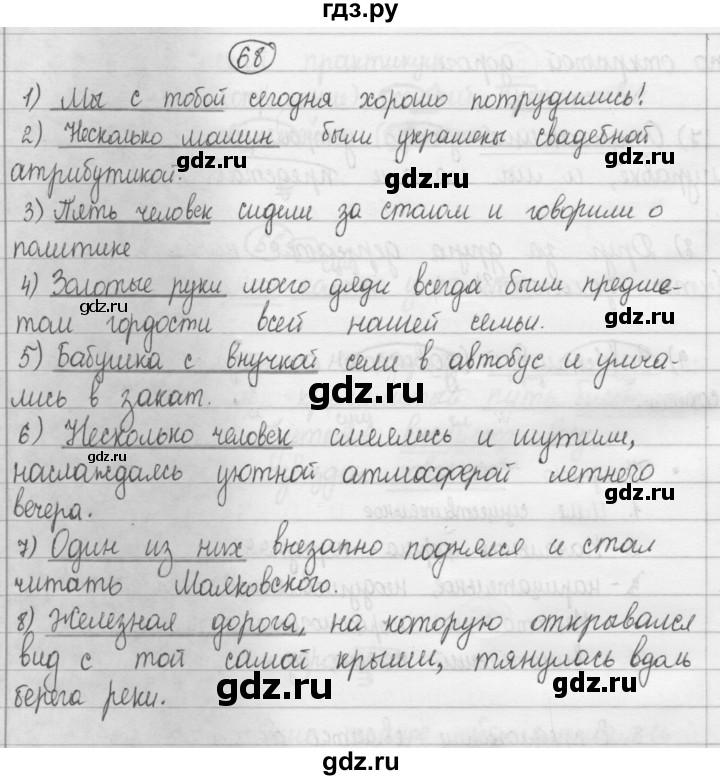 гдз.ру
68
1) Мы с тобой сегодня хорошо потрудились!
2) Несколько машин были украшены свадебной
атрибутикой.
gdz.ru
gdz.ru
3) Пять человек сидели за столом и говорили о
политике
gdz.ru
4) Золотые руки моего дяди всегда были предме-
gdz.ru
том гордости всей нашей семьи.
gdz.ru
5) Бабушка с внучкой сели в автобус и умча-
лись в закат.
gdz.ru
gdz.ru
6) Несколько человек смеялись и шутили,
gdz.ru
наслаждаясь уютной атмосферой летнего
вечера.
gdz.ru
7) Один из них внезапно поднялся и стал
gdz.ru
читать Маяковского.
gdz.ru
8) Железная дорога, на которую открывался
вид с той самой крыши, тянулась вдоль
берега реки.
gdz.ru
gdz.ru
gdz.ru